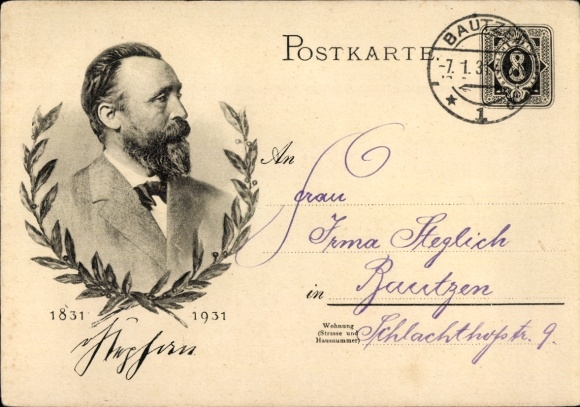 POSTKARTE
BAUTZEN
-7.1.3
* 1
8
An
Frau
Irma Steglich
in Bautzen
Wohnung
(Strasse und
Hausnummer)
Schlachthofstr. 9.
1831 1931
Stephan